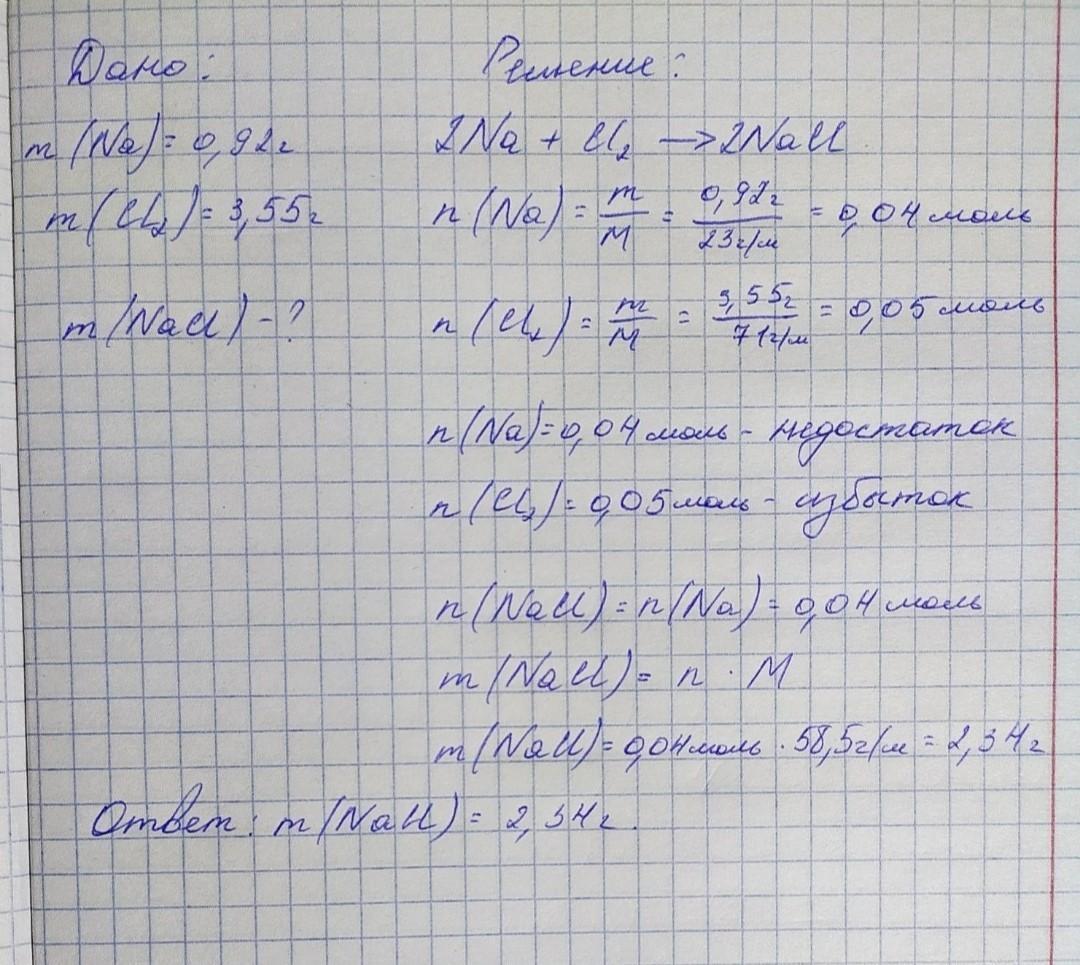 Дано: Решение:
m (Na) = 0,92г 2Na + Cl₂ → 2NaCl
m (Cl₂) = 3,55г n (Na) = m/M = 0,92г/23г/м = 0,04 моль
m (NaCl) - ? n (Cl₂) = m/M = 3,55г/71г/м = 0,05 моль
n (Na) = 0,04 моль - недостаток
n (Cl₂) = 0,05 моль - избыток
n (NaCl) = n (Na) = 0,04 моль
m (NaCl) = n · M
m (NaCl) = 0,04 моль · 58,5г/м = 2,34г
Ответ: m (NaCl) = 2,34г.